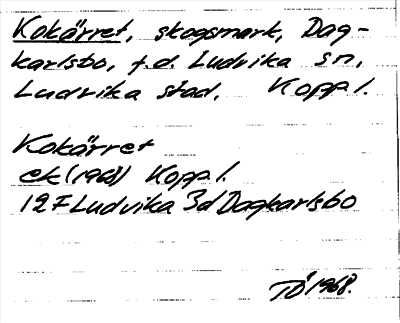 Kokärret, skogsmark, Dag-
karlsbo, f.d. Ludvika sn,
Ludvika stad. Kopp l.
Kokärret
ek (1968) Kopp l.
12F Ludvika 3d Dagkarlsbo
TÖ 1968.